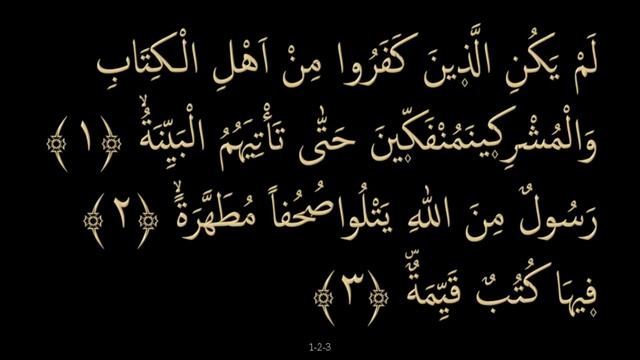 لَمْ يَكُنِ الَّذِينَ كَفَرُوا مِنْ اَهْلِ الْكِتَابِ
وَالْمُشْرِكِينَمُنْفَكِّينَ حَتّٰى تَأْتِيَهُمُ الْبَيِّنَةُۙ ﴿١﴾
رَسُولٌ مِنَ اللّٰهِ يَتْلُواصُحُفاً مُطَهَّرَةًۙ ﴿٢﴾
فِيهَا كُتُبٌ قَيِّمَةٌۜ ﴿٣﴾
1-2-3